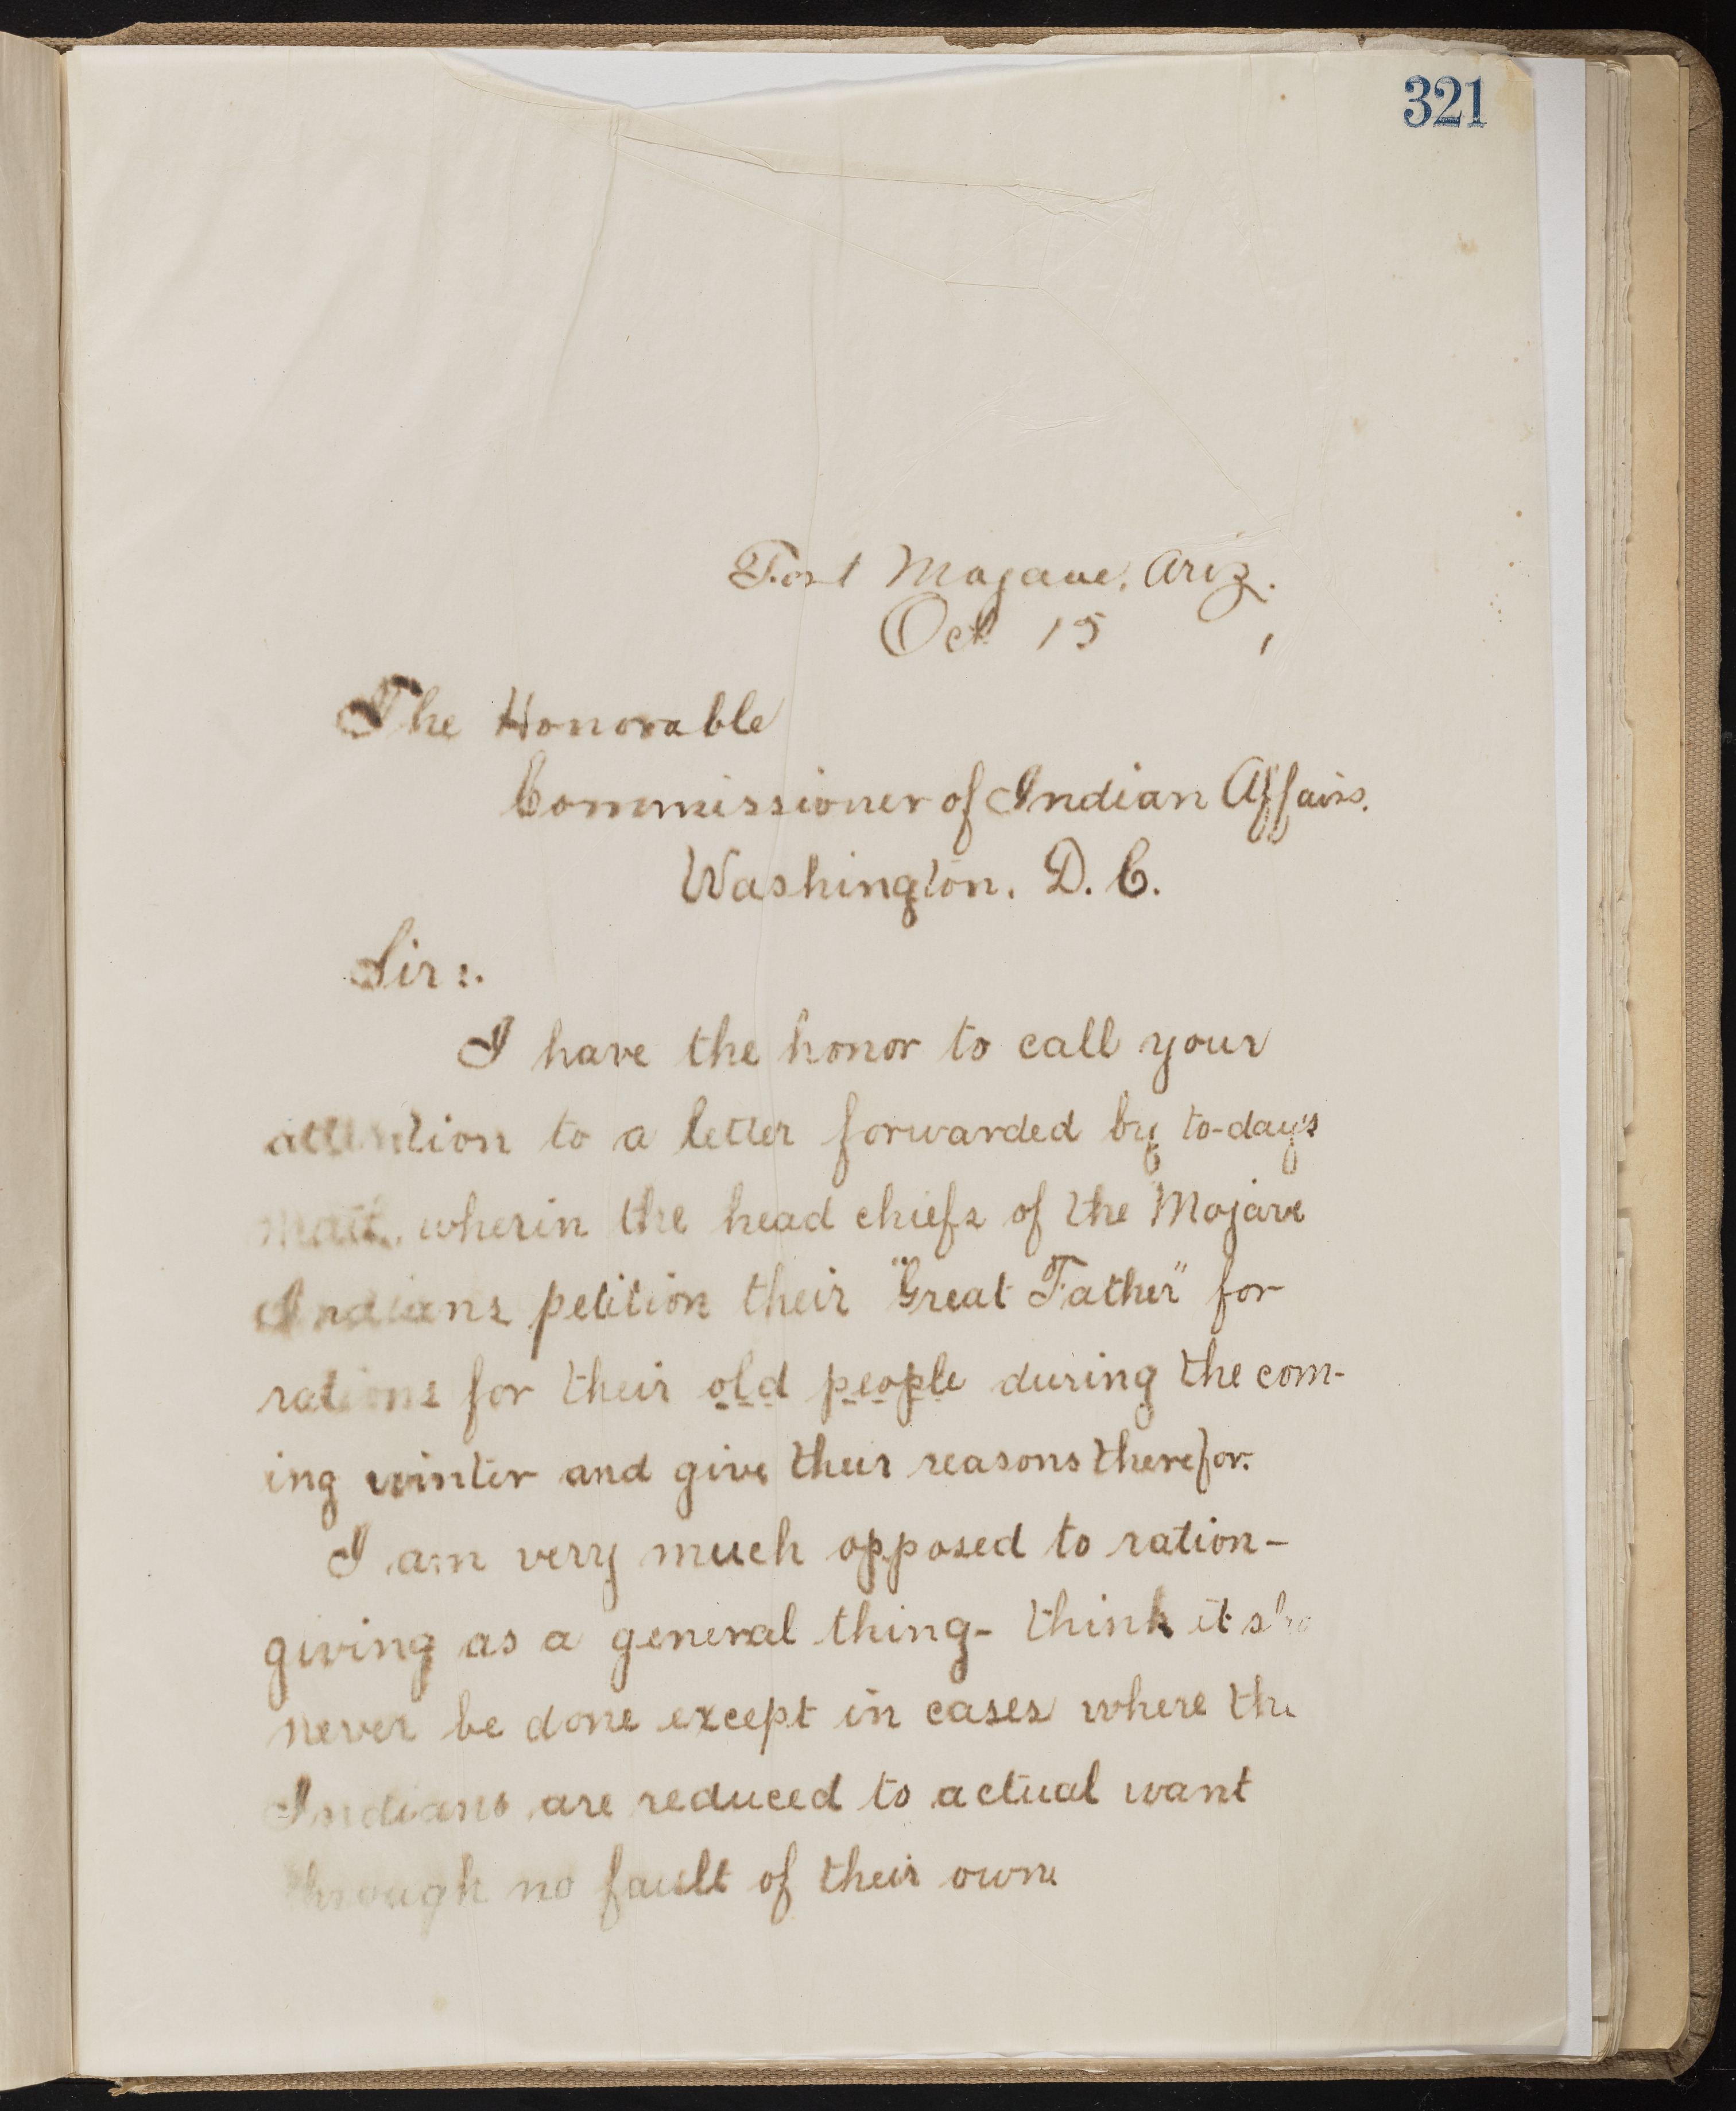 321
Fort Mojave, Ariz.
Oct 15
The Honorable
Commissioner of Indian Affairs.
Washington, D. C.
Sir:
I have the honor to call your
attention to a letter forwarded by to-day's
mail, wherin the head chiefs of the Mojave
Indians petition their "Great Father" for
rations for their old people during the com-
ing winter and give their reasons therefor.
I am very much opposed to ration-
giving as a general thing - think it
never be done except in cases where the
Indians are reduced to actual want
through no fault of their own